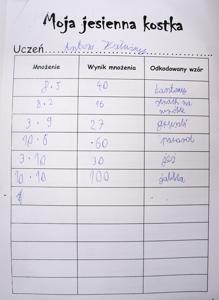 Moja jesienna kostka
Uczeń Antoni
Mnożenie Wynik mnożenia Odkodowany wzór
8 · 5 40 kasztany
8 · 2 16
3 · 9 27 grzybki
10 · 6 60 parasol
3 · 10 30 pies
10 · 10 100 jabłka